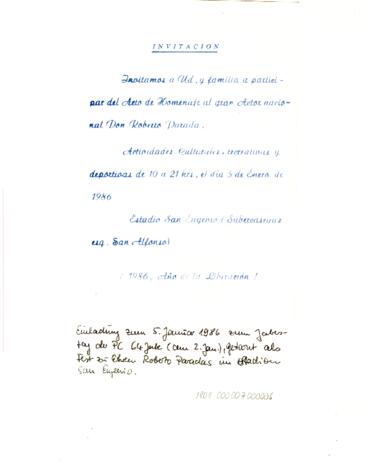 INVITACION
Invitamos a Ud. y familia a partici-
par del Acto de Homenaje al gran Actor nacio-
nal Don Roberto Parada.
Actividades Culturales, recreativas y
deportivas de 10 a 21 hrs, el día 5 de Enero de
1986
Estadio San Eugenio ( Subercaseaux
esq. San Alfonso)
¡ 1986, Año de la Liberación !
Einladung zum 5. Januar 1986 zum Jahres-
tag der PC 64 Jahre (am 2. Jan), getarnt als
Fest zu Ehren Roberto Paradas im Stadion
San Eugenio.
000007 000006